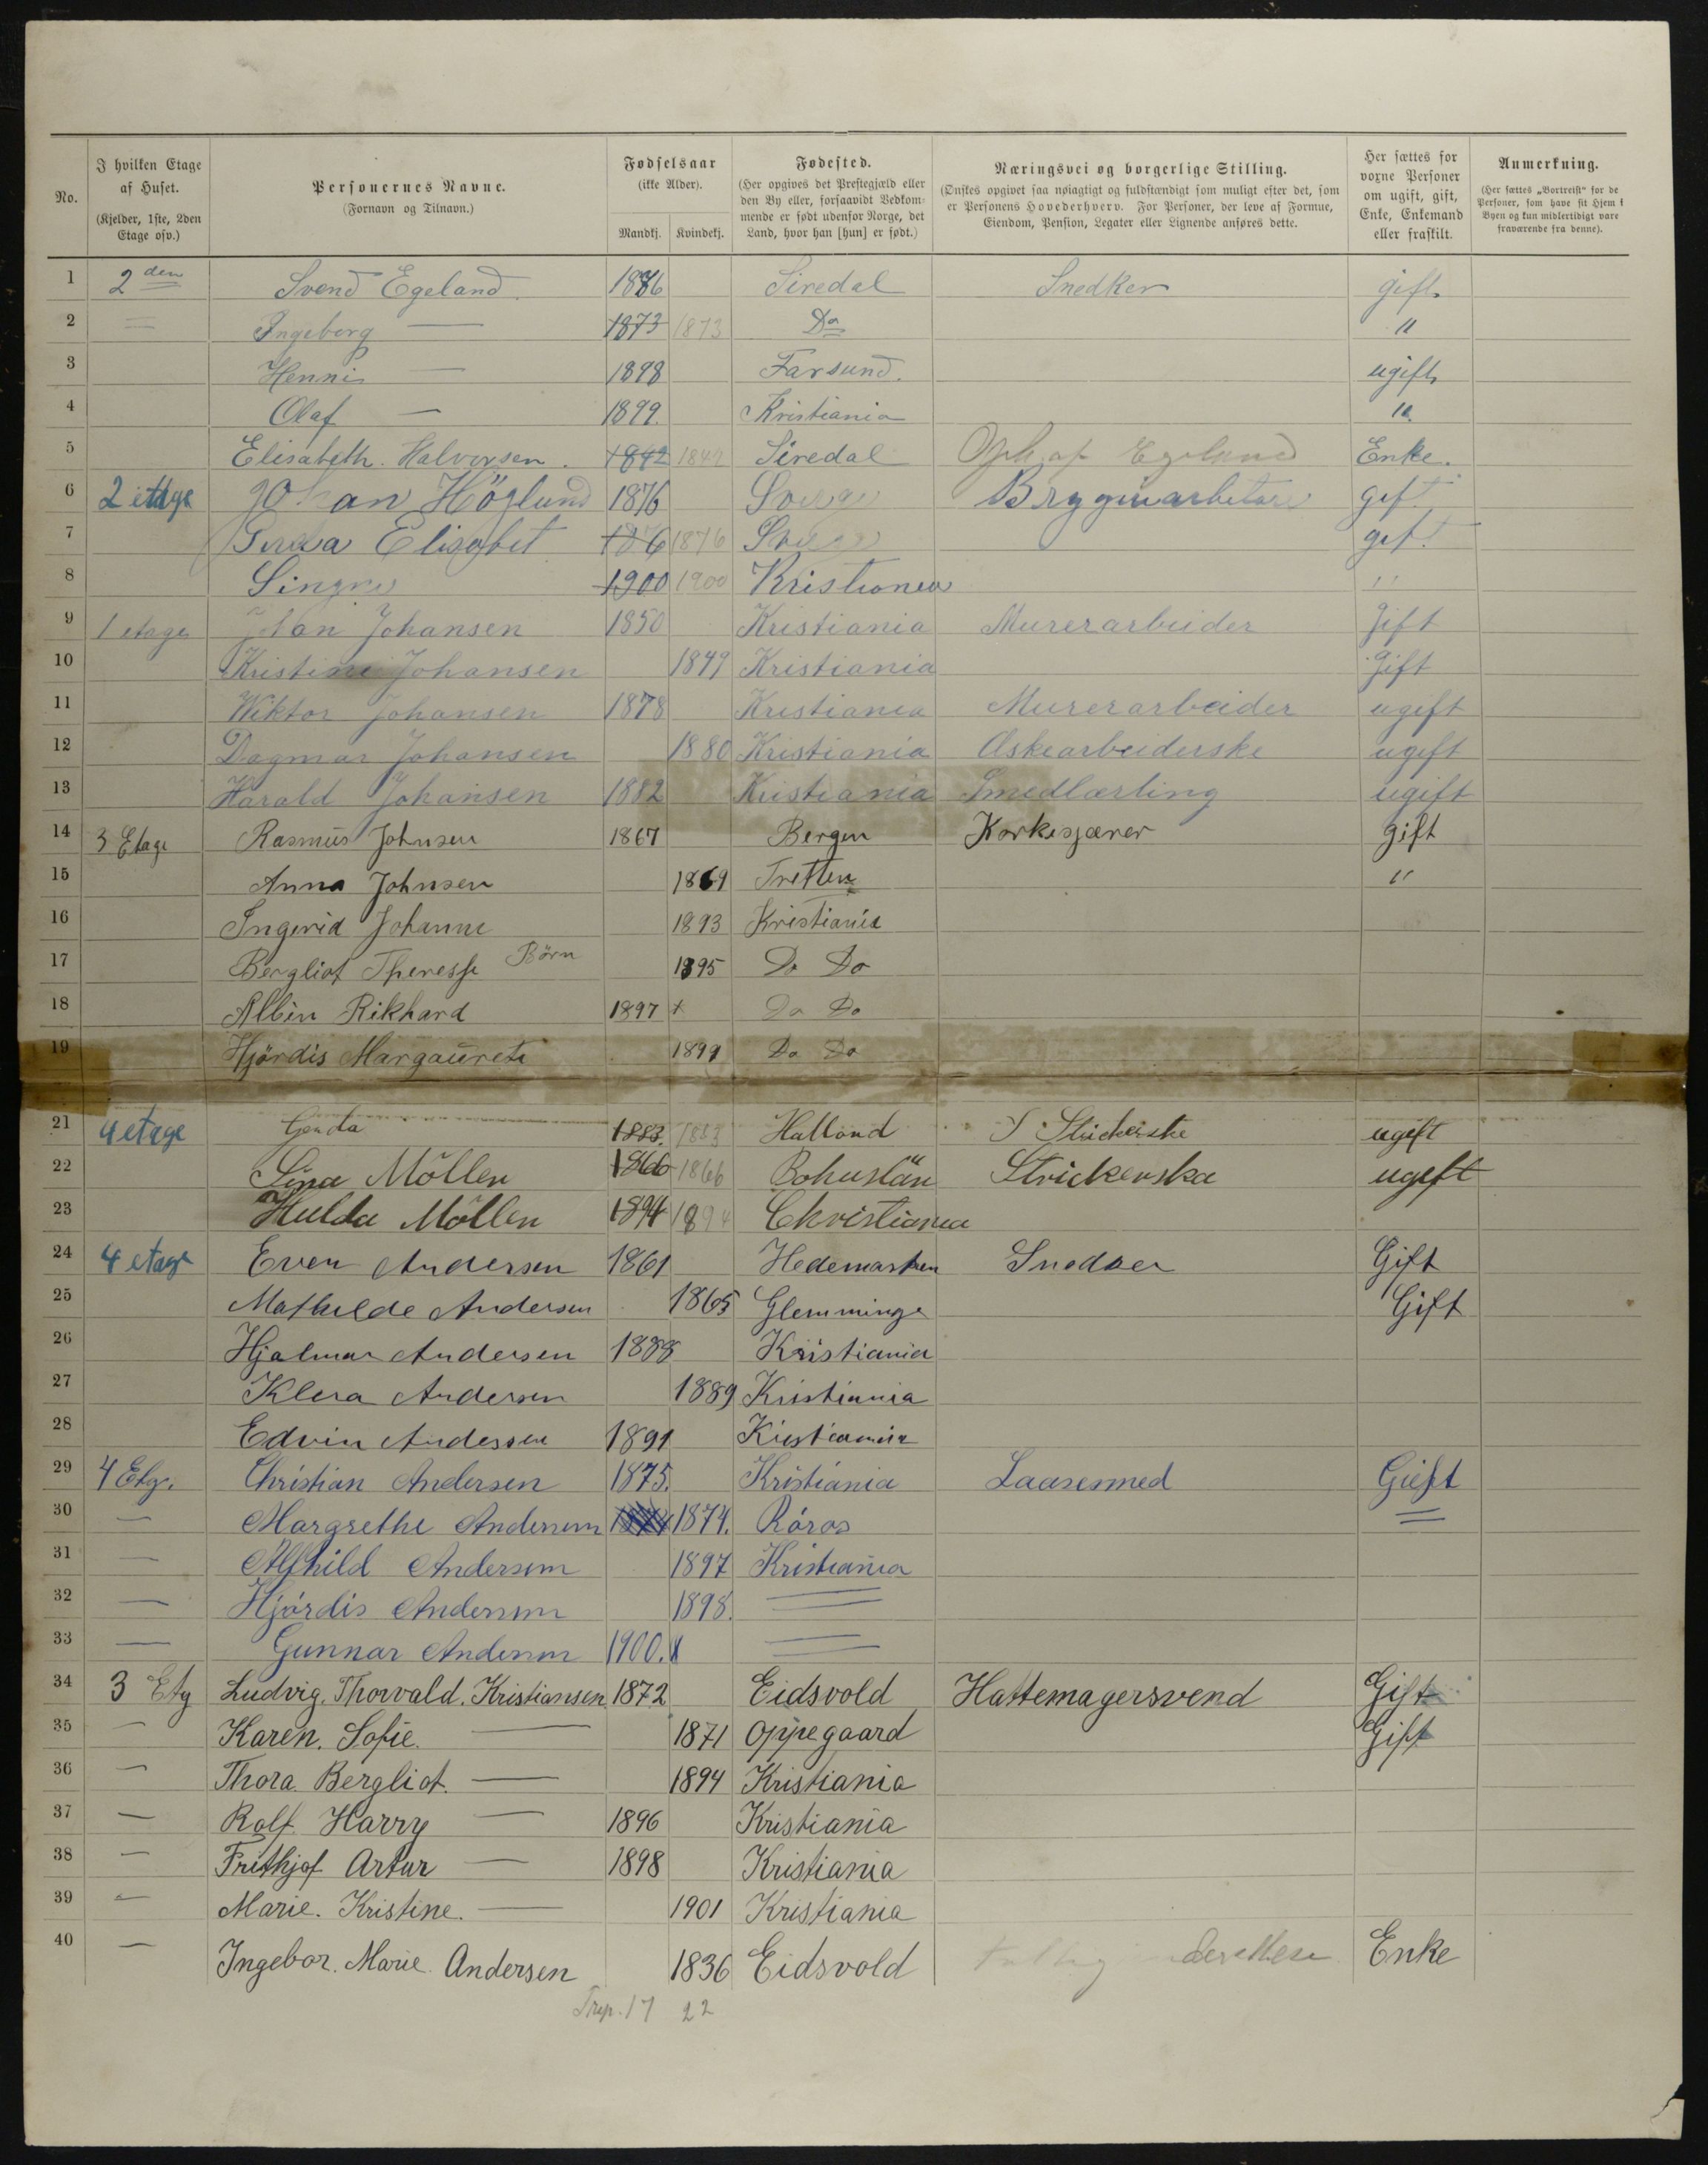 No.
I hvilken Etage af Huset.
(Kjelder, 1ste, 2den Etage osv.)
Personernes Navne.
(Fornavn og Tilnavn.)
Fødselsaar
(ikke Alder).
Mandkj. Kvindekj.
Fødested.
(Her opgives det Prestegjæld eller den By eller, forsaavidt Vedkommende er født udenfor Norge, det Land, hvor han [hun] er født.)
Næringsvei og borgerlige Stilling.
(Ønskes opgivet saa nøiagtigt og fuldstændigt som muligt efter det, som er Personens Hovederhverv. For Personer, der leve af Formue, Eiendom, Pension, Legater eller Lignende anføres dette.
Her sættes for voxne Personer om ugift, gift, Enke, Enkemand eller fraskilt.
Anmerkning.
(Her sættes „Bortreist" for de Personer, som have sit Hjem i Byen og kun midlertidigt vare fraværende fra denne).
1 2den Svend Egeland. 1876 Siredal Snedker gift
2 = Ingeborg — 1873 1873 Do "
3 Henni — 1898 Farsund. ugift
4 Olaf — 1899. Kristiania "
5 Elisabeth. Halvorsen. 1842 1842 Siredal Egeland Enke.
6 2 etage Johan Höglund 1876 Sverge Bryggriarbetare gift
7 Gerda Elisabet 1876 1876 Sverge gift
8 Singne 1900 1900 Kristianea "
9 1 etage Johan Johansen 1850 Kristiania Murerarbeider Gift
10 Kristine Johansen 1849 Kristiania Gift
11 Wiktor Johansen 1878 Kristiania Murerarbeider ugift
12 Dagmar Johansen 1880 Kristiania Æskearbeiderske ugift
13 Harald Johansen 1882 Kristiania Smedlærling ugift
14 3 Etage Rasmus Johnsen 1867 Bergen Korkesjærer gift
15 Anna Johnsen 1869 Tretten "
16 Ingerid Johanne 1893 Kristiania
17 Bergliot Theresse Börn 1895 Do Do
18 Albin Rikhard 1897 x Do Do
19 Hjördis Margaurete 1899 Do Do
21 4 etage Gerda 1883. 1883 Halland Strickerske ugift
22 Lina Möllen 1866 1866 Bohuslän Strickerska ugift
23 Hulda Möllen 1894 1894 Christiania
24 4 etage Even Andersen 1861 Hedemarken Snedker Gift
25 Mathilde Andersen 1865 Glemminge Gift
26 Hjalmar Andersen 1888 Kristiania
27 Klera Andersen 1889 Kristiania
28 Edvin Andersen 1891 Kristiania
29 4 Etg. Christian Andersen 1875. Kristiania Laasesmed Gieft
30 — Margrethe Andersen 1874. Röros =
31 — Alfhild Andersen 1897 Kristiania
32 — Hjördis Andersen 1898. =
33 — Gunnar Andersen 1900. x =
34 3 Etg Ludvig. Thorvald. Kristiansen 1872 Eidsvold Hattemagersvend Gift
35 — Karen. Sofie. — 1871 Oppegaard Gift
36 — Thora Bergliot. — 1894 Kristiania
37 — Rolf Harry — 1896 Kristiania
38 — Frithjof Artur — 1898 Kristiania
39 — Marie. Kristine. — 1901 Kristiania
40 — Ingebor. Marie Andersen 1836 Eidsvold Enke
17 22